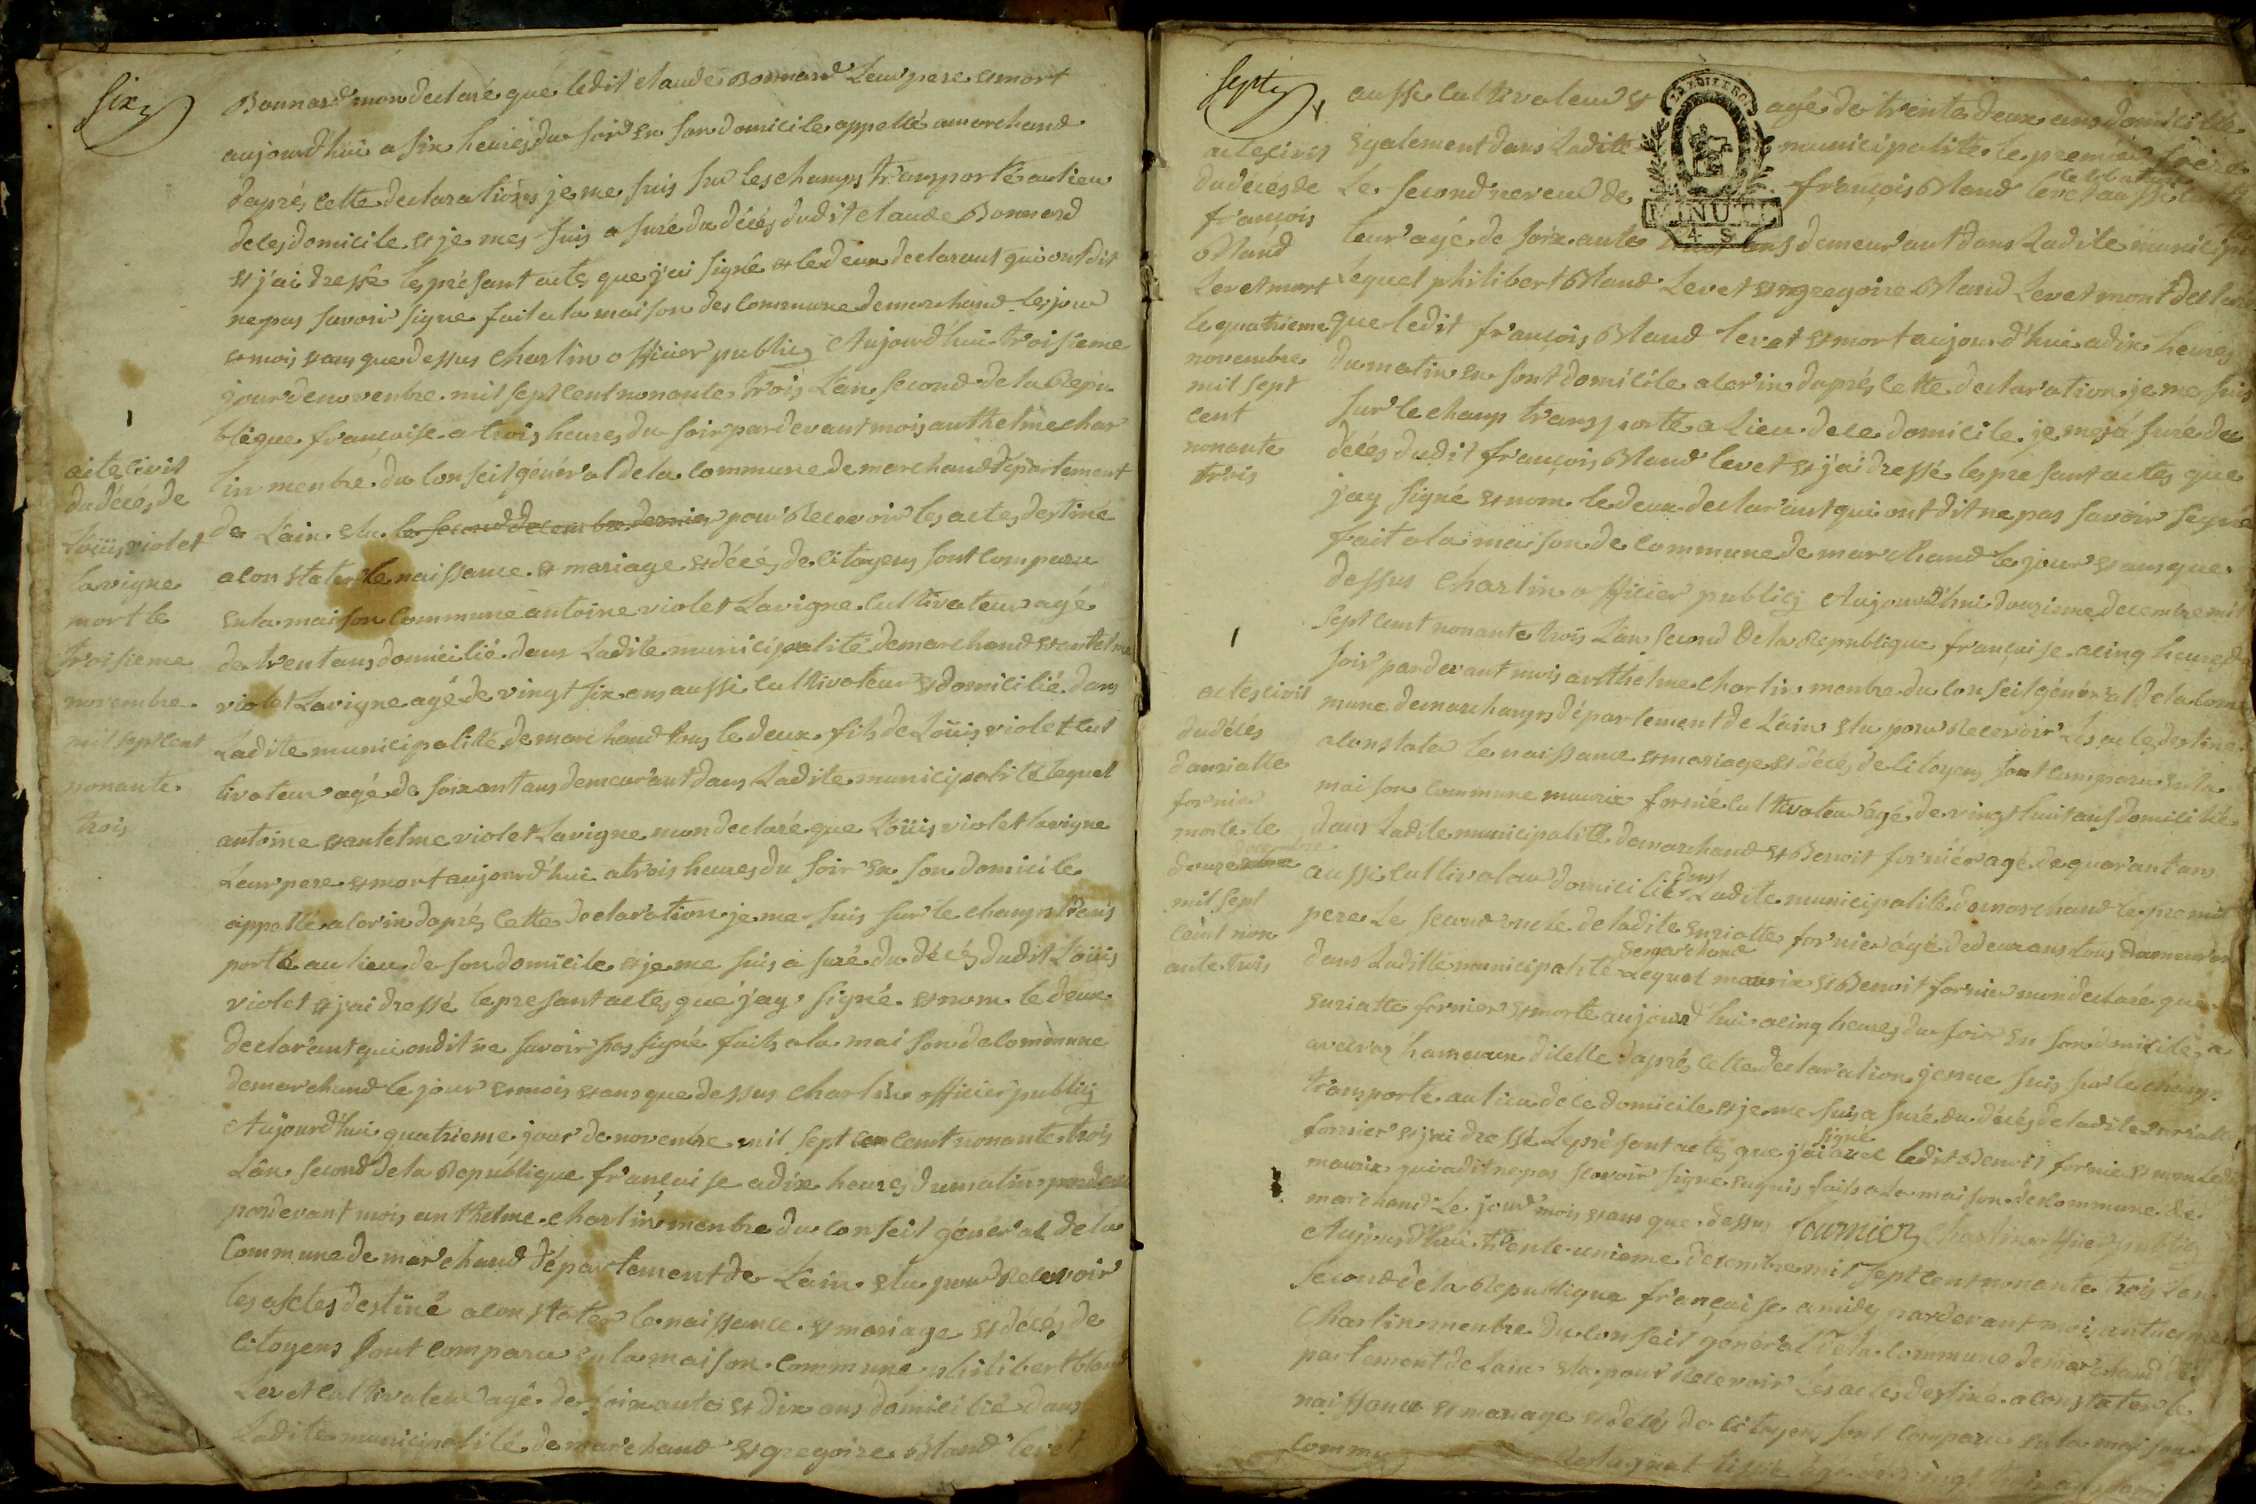 six
Bonnard mon declaré que ledit claude Bonnard Leur pere et mort
aujourd'hui a six heures du soir en son domicile appellé amarchand
daprés cette declarations je me suis sur les champs transporté au lieu
de ces domicile et je mes suis a suré du décés dudit claude Bonnard
et j'ai dressé les présant actes que j'ai signé et le deux declarant qui ont dit
ne pas savoir signe fait a la maison des commune de marchand les jour
et mois et ans que dessus charlin officier public Aujourd'hui troisieme
jour de novembre mil sept cent nonante trois L'an second de la Repu
blique françoise a trois heures du soir par devant mois anthelme char
lin menbre du conseil général de la commune de marchand département
de Lain elu le second decembre dernier pour Recevoir les actes destiné
a constater le naissance et mariage et décés de citoyens sont comparu
en la maison commune antoine violet Lavigne cultivateur agé
de trent ans domicilié dans Ladite municipalité de marchand et antelme
violet Lavigne agé de vingt six ans aussi cultivateur et domicilié dans
Ladite municipalité de marchand tous le deux fils de Loüis violet cul
tivateur agé de soixant ans demeurant dans Ladite municipalité lequel
antoine et antelme violet Lavigne mon declaré que Loüis violet lavigne
Leur pere et mort aujourd'hui a trois heures du soir en son domicile
appellé a corin daprés cette declaration je me suis sur le champs trans
porté au lieu de son domicile et je me suis a suré du décés dudit Loüis
violet et j'ai dressé le presant actes que j'ay signé et nom le deux
declarant qui ondit ne savoir pas signé faits a la maison de commune
de marchand le jour et mois et ans que dessus charlin officier public
Aujourd'hui quatrieme jour de novembre mil sept cent nonante trois
L'ân second de la République françai se a dix heures du matin
par devant mois anthelme charlin menbre du conseil géneral de la
Commune de marchand département de Lain elu pour Recevoir
les actes destiné a constater le naissance et mariage et décés de
citoyens sont comparu en la maison commune philibert bland
Levet cultivateur agé de soixante et dix ans domicilié dans
Ladite municipalité de marchand et gregoire Bland levet
actes civil
du décés de
Loüis violet
lavigne
mort le
troisieme
novembre
mil sept cent
nonante
trois
Sept
aussi cultivateur et agé de trente deux ans domicilié
également dans Ladite municipalité le premier frère
Le second neveu de françois Bland levet aussi culti
teur agé de soixante ans demeurant dans Ladite municipa
Lequel philibert Bland Levet et gregoire Bland Levet mont declaré
que ledit françois Bland levet et mort aujourd'hui a dix heures
du matin en sont domicile a corin daprés cette declaration je me suis
sur le champ transporté a Lieu de ce domicile je me sú suré du
décés dudit françois Bland levet et j'ai dressé les presant actes que
j'ay signé et nom le deux declarant qui ont dit ne pas savoir signé
fait a la maison de commune de marchand le jour et ans que
dessus charlin officier public Aujourd'hui douzieme decembre mil
sept cent nonante trois L'an second de la Republique françaisse a cinq heures du
soir par devant mois anthelme charlin menbre du conseil général de la com
mune de marchamps département de Lain elu pour Recevoir Les actes destiné
a constater le naissance et mariage et décés de citoyens sont comparu en la
maison commune maurix fornié cultivateur agé de vingt huit ans domicilié
dans Ladite municipalité de marchand et Benoit forniér agé de quarant ans
aussi cultivateur domicilié dans Ladite municipalité de marchand le premier
pere Le second oncle de ladite euriatte fornier agé de deux ans tous demeurant
dans Laditte municipalité de marchand Lequel maurix et Benoit fornier mon declaré que
euriatte fornier et morte aujourd'hui a cinq heures du soir en son domicile a
hameaux dicelle daprés cette declaration je me suis sur le champ
transporté au lieu de ce domicile et je me suis a suré du décés de ladite euriatte
fornier et j'ai dressé Les présant actes que j'ai signé avec ledit Benoit fornier et nom ledit
maurix qui a dit ne pas scavoir signe enquis faits a la maison de commune de
marchand Le jour mois et ans que dessus fournier charlin officier public
Aujourd'hui trente unieme decembre mil sept cent nonante trois Lan
second de la Republique française a midy par devant moi antuelme
charlin menbre du conseil general de la commune de marchand dé
partement de Lain elu pour Recevoir Les actes destiné a constater le
naissance et mariage et décés de citoyens sont comparu en la maison
commu
actes civil
du décés de
françois
Bland
Levet mort
le quatrieme
novembre
mil sept
cent
nonante
trois
actes civil
du décés
d'auriatte
fornier
morte le
douze decembre
mil sept
cent non
ante trois
MINUTE
4 S